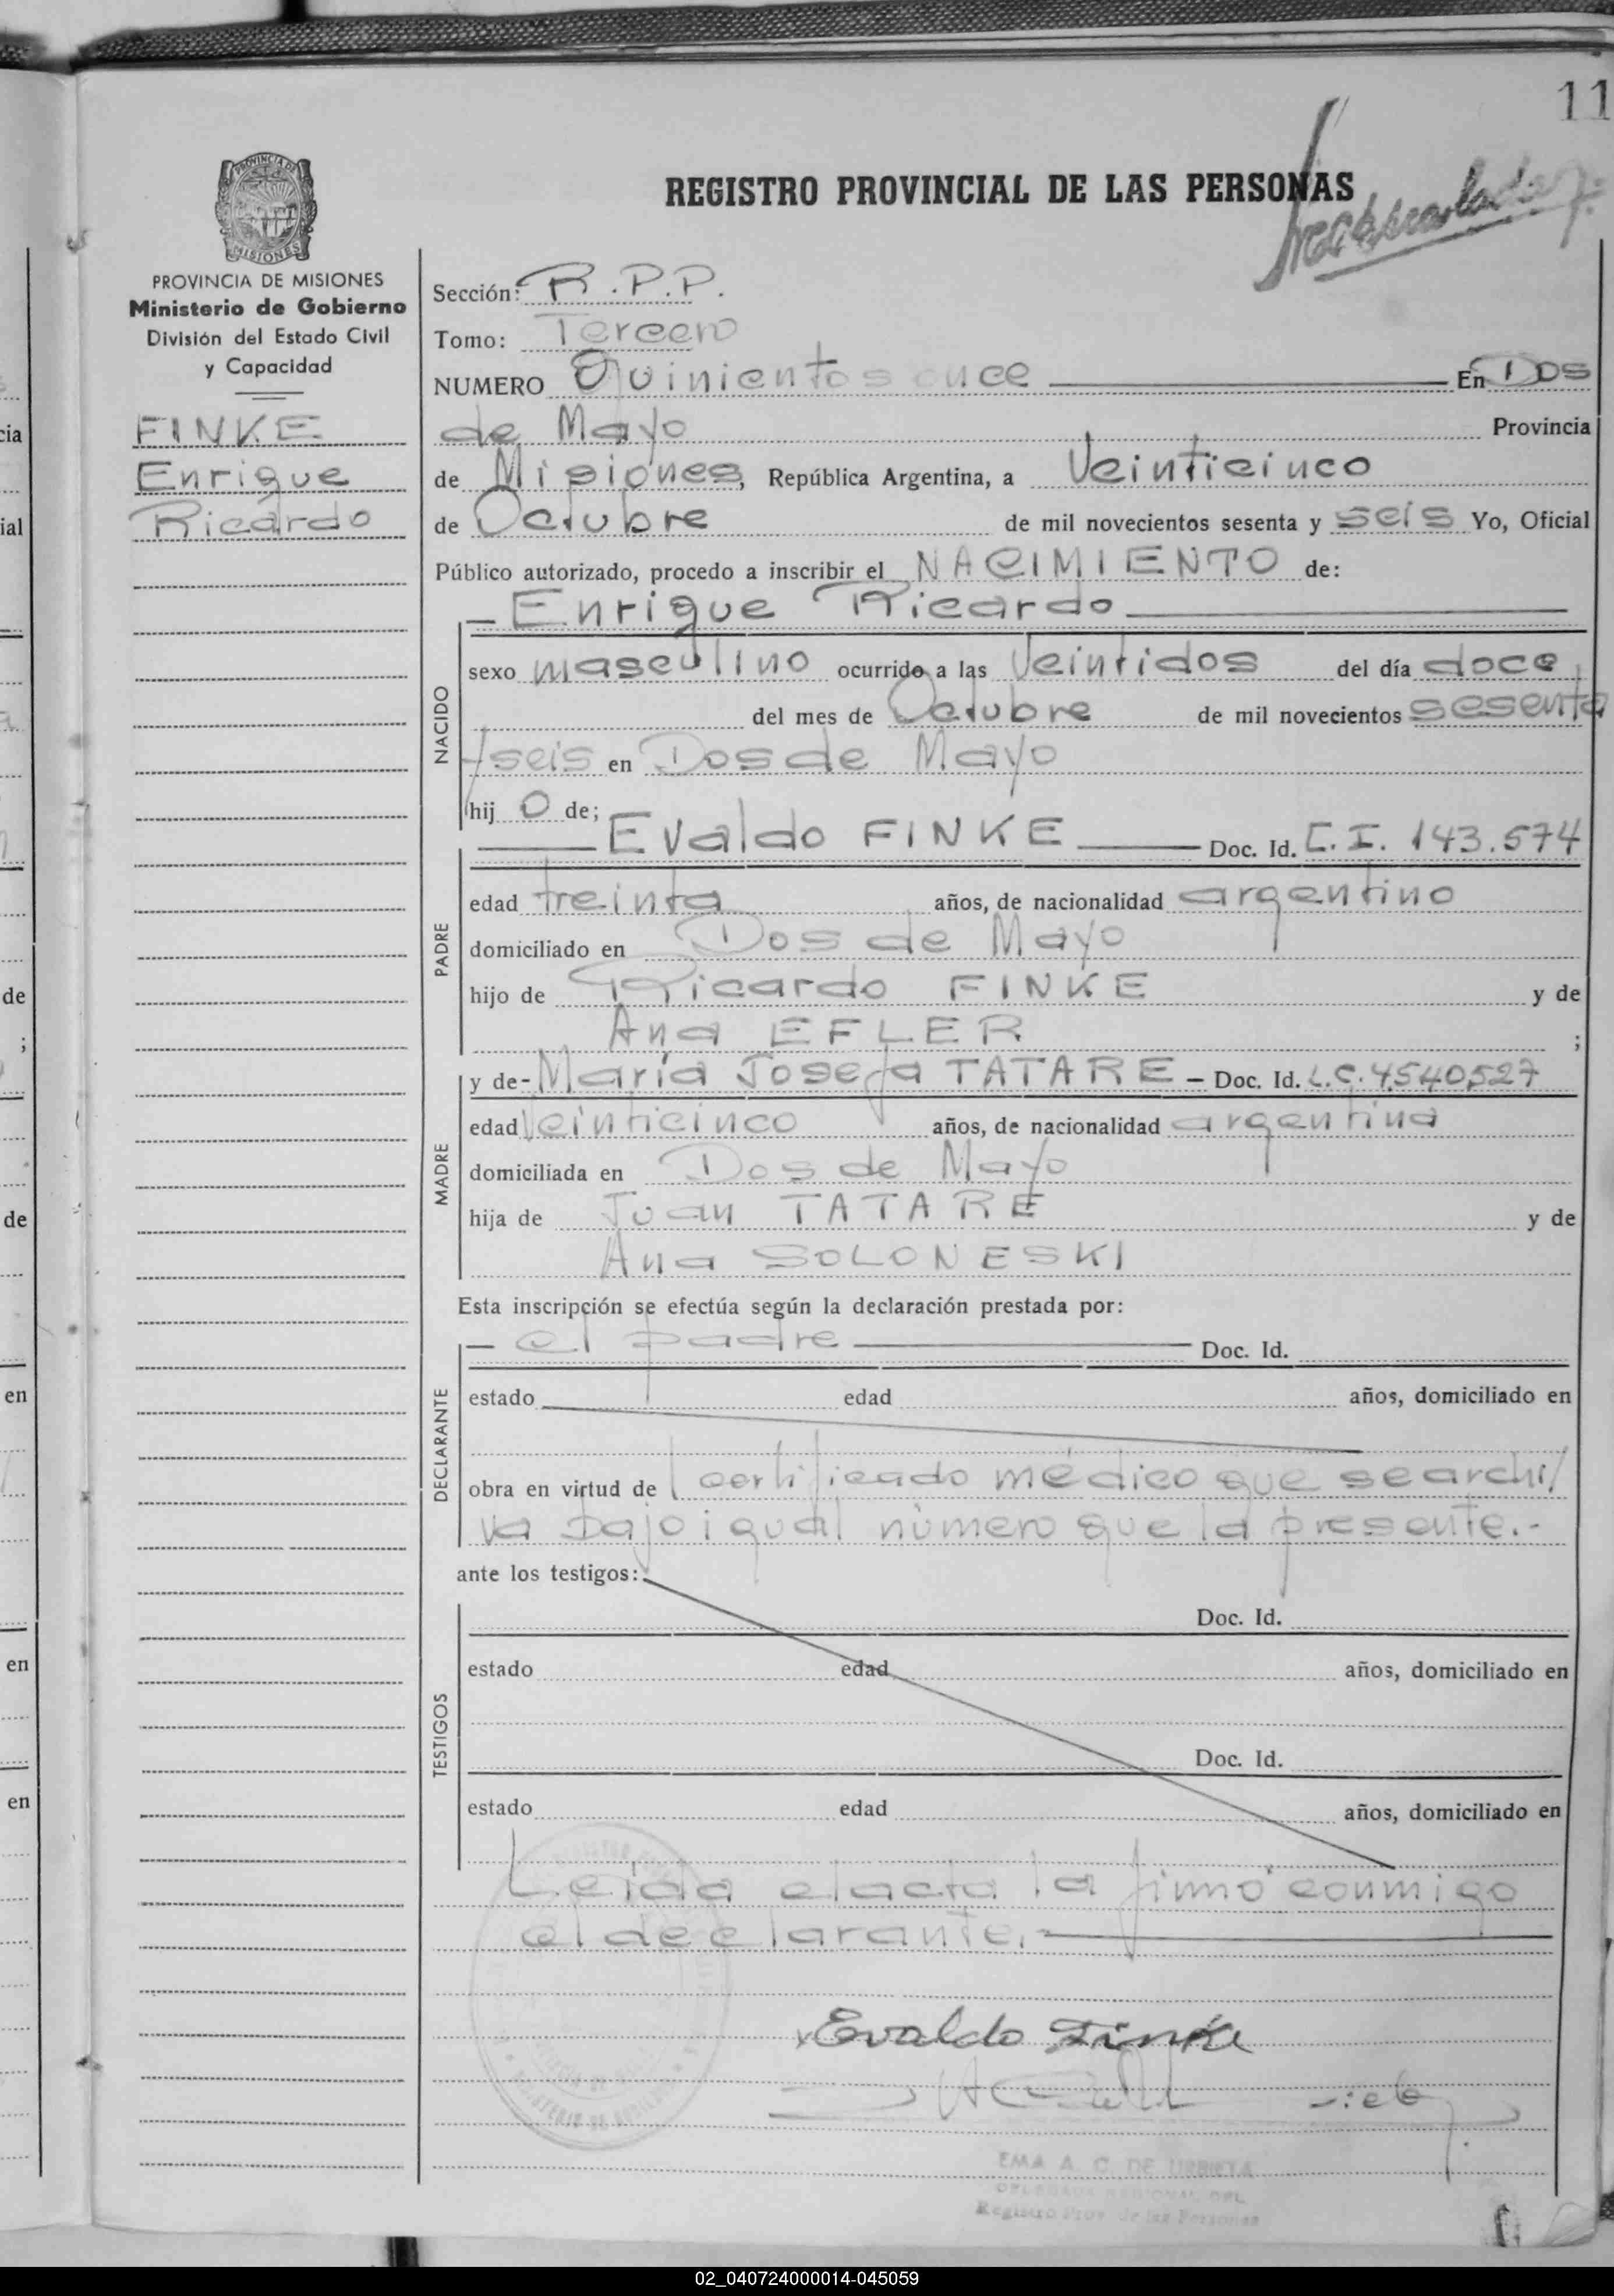 11
REGISTRO PROVINCIAL DE LAS PERSONAS
PROVINCIA DE MISIONES
MISIONES
PROVINCIA DE MISIONES
Ministerio de Gobierno
División del Estado Civil
y Capacidad
FINKE
Enrique
Ricardo
Sección: R.P.P.
Tomo: Tercero
NUMERO Quinientos once En Dos
de Mayo Provincia
de Misiones, República Argentina, a Veinticinco
de Octubre de mil novecientos sesenta y seis Yo, Oficial
Público autorizado, procedo a inscribir el NACIMIENTO de:
- Enrique Ricardo
NACIDO
sexo masculino ocurrido a las Veintidos del día doce
del mes de Octubre de mil novecientos sesenta
y seis en Dos de Mayo
hij o de;
Evaldo FINKE Doc. Id. C.I. 143.574
PADRE
edad treinta años, de nacionalidad argentino
domiciliado en Dos de Mayo
hijo de Ricardo FINKE y de
Ana EFLER ;
y de- María Josefa TATARE - Doc. Id. L.C. 4.540.527
MADRE
edad Veinticinco años, de nacionalidad argentina
domiciliada en Dos de Mayo
hija de Juan TATARE y de
Ana SOLONESKI
Esta inscripción se efectúa según la declaración prestada por:
- el padre Doc. Id.
DECLARANTE
estado edad años, domiciliado en
obra en virtud de certificado médico que se archi/
va bajo igual número que la presente.-
ante los testigos:
TESTIGOS
Doc. Id.
estado edad años, domiciliado en
Doc. Id.
estado edad años, domiciliado en
Leída el acta la firmó conmigo
el declarante.-
Evaldo Finke
EMA A. C. DE URRIETA
Registro Prov. de las Personas
cia
ial
de
;
de
en
en
en
02_040724000014-045059